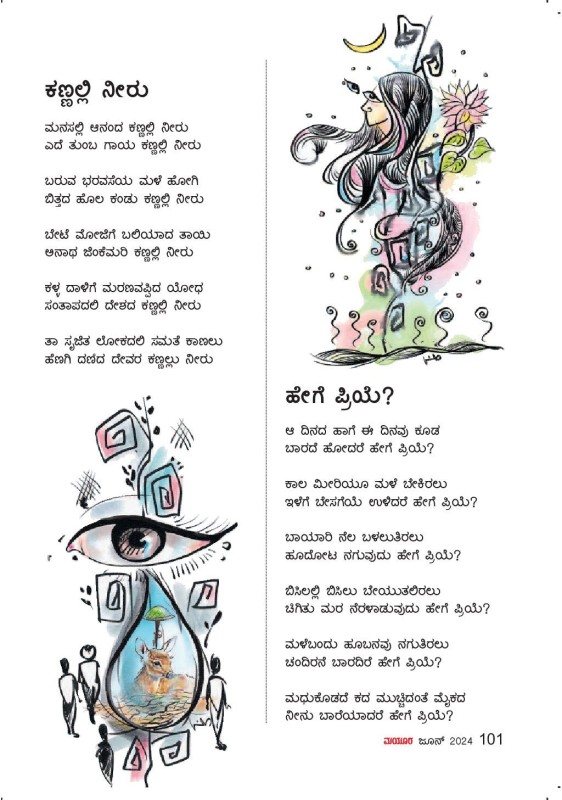 ಕಣ್ಣಲ್ಲಿ ನೀರು
ಮನಸಲ್ಲಿ ಆನಂದ ಕಣ್ಣಲ್ಲಿ ನೀರು
ಎದೆ ತುಂಬ ಗಾಯ ಕಣ್ಣಲ್ಲಿ ನೀರು
ಬರುವ ಭರವಸೆಯ ಮಳೆ ಹೋಗಿ
ಬಿತ್ತದ ಹೊಲ ಕಂಡು ಕಣ್ಣಲ್ಲಿ ನೀರು
ಬೇಟೆ ಮೋಜಿಗೆ ಬಲಿಯಾದ ತಾಯಿ
ಅನಾಥ ಜಿಂಕೆಮರಿ ಕಣ್ಣಲ್ಲಿ ನೀರು
ಕಳ್ಳ ದಾಳಿಗೆ ಮರಣವಪ್ಪಿದ ಯೋಧ
ಸಂತಾಪದಲಿ ದೇಶದ ಕಣ್ಣಲ್ಲಿ ನೀರು
ತಾ ಸೃಜಿತ ಲೋಕದಲಿ ಸಮತೆ ಕಾಣಲು
ಹೆಣಗಿ ದಣಿದ ದೇವರ ಕಣ್ಣಲ್ಲು ನೀರು
ಹೇಗೆ ಪ್ರಿಯೆ?
ಆ ದಿನದ ಹಾಗೆ ಈ ದಿನವು ಕೂಡ
ಬಾರದೆ ಹೋದರೆ ಹೇಗೆ ಪ್ರಿಯೆ?
ಕಾಲ ಮೀರಿಯೂ ಮಳೆ ಬೇಕಿರಲು
ಇಳೆಗೆ ಬೇಸಗೆಯೆ ಉಳಿದರೆ ಹೇಗೆ ಪ್ರಿಯೆ?
ಬಾಯಾರಿ ನೆಲ ಬಳಲುತಿರಲು
ಹೂದೋಟ ನಗುವುದು ಹೇಗೆ ಪ್ರಿಯೆ?
ಬಿಸಿಲಲ್ಲಿ ಬಿಸಿಲು ಬೇಯುತಲಿರಲು
ಚಿಗಿತು ಮರ ನೆರಳಾಡುವುದು ಹೇಗೆ ಪ್ರಿಯೆ?
ಮಳೆಬಂದು ಹೂಬನವು ನಗುತಿರಲು
ಚಂದಿರನೆ ಬಾರದಿರೆ ಹೇಗೆ ಪ್ರಿಯೆ?
ಮಧುಕೊಡದೆ ಕದ ಮುಚ್ಚಿದಂತೆ ಮೈಕದ
ನೀನು ಬಾರೆಯಾದರೆ ಹೇಗೆ ಪ್ರಿಯೆ?
ಮಯೂರ ಜೂನ್ 2024 101